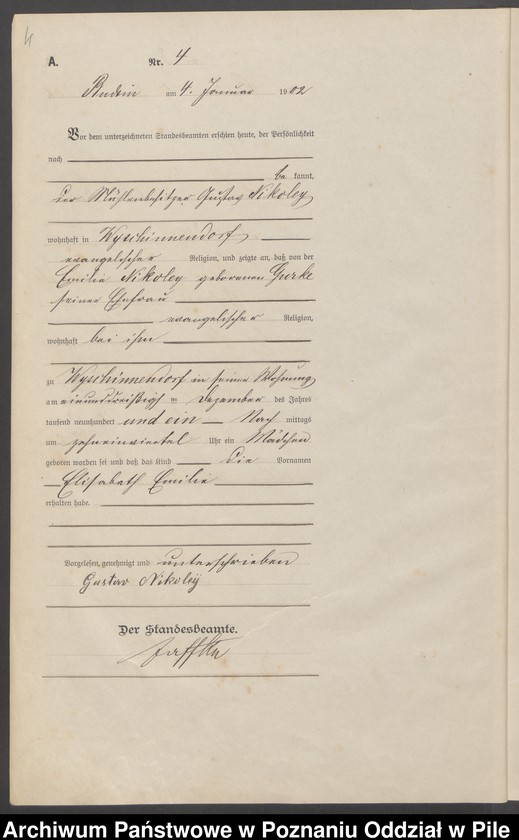 4
A. Nr. 4
Budsin am 4. Januar 1902
Vor dem unterzeichneten Standesbeamten erschien heute, der Persönlichkeit
nach
bekannt,
der Mühlenbesitzer Gustav Nikoley
wohnhaft in Wyschinnendorf
evangelischer Religion, und zeigte an, daß von der
Emilie Nikoley geborenen Gurke
seiner Ehefrau
evangelischer Religion,
wohnhaft bei ihm
zu Wyschinnendorf in seiner Wohnung
am einunddreißigsten Dezember des Jahres
tausend neunhundert und ein Nach mittags
um zehneinviertel Uhr ein Mädchen
geboren worden sei und daß das Kind die Vornamen
Elisabeth Emilie
erhalten habe.
Vorgelesen, genehmigt und unterschrieben
Gustav Nikoley
Der Standesbeamte.
Archiwum Państwowe w Poznaniu Oddział w Pile